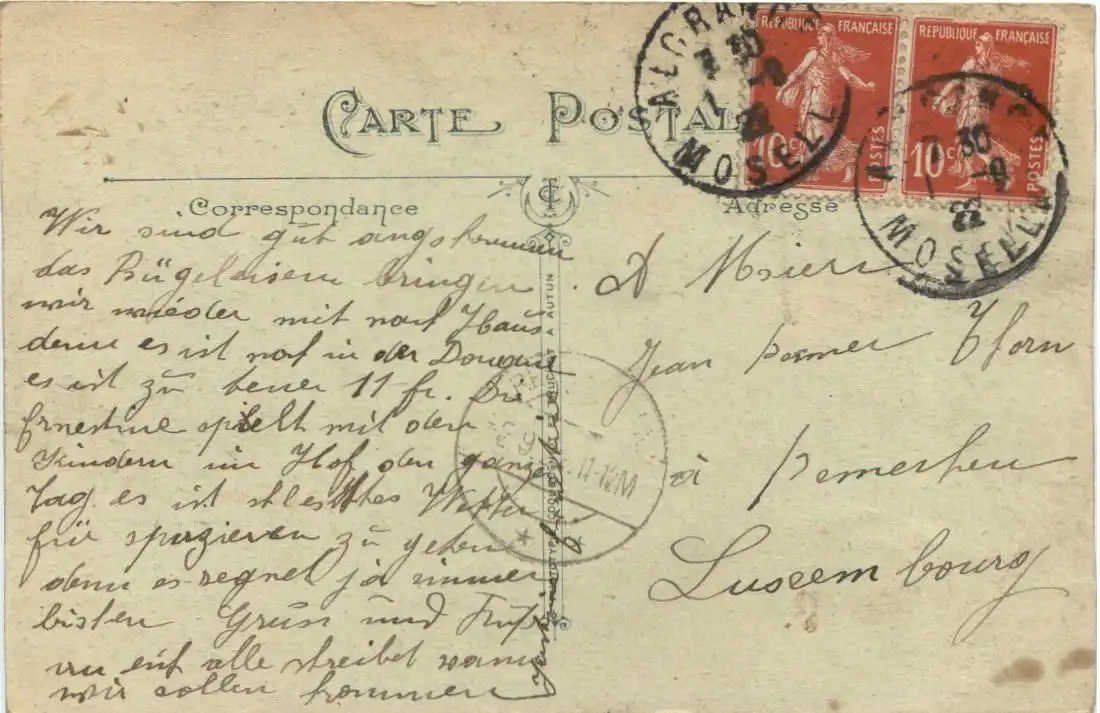 CARTE POSTALE
RÉPUBLIQUE FRANÇAISE
10 c
POSTES
RÉPUBLIQUE FRANÇAISE
10 c
POSTES
ALGRANGE
7 30
1 -8
22
MOSELLE
ALGRANGE
7 30
1 -8
22
MOSELLE
Correspondance
Adresse
Wir sind gut angekommen
das Bügeleisen bringen
wir wieder mit nach Haus
denn es ist noch in der Douane
es ist zu teuer 11 fr. Die
Ernestine spielt mit den
Kindern im Hof den ganzen
Tag es ist schlechtes Wetter
für spazieren zu gehen
denn es regnet ja immer
bisten Gruss und
an euch alle schreibet wann
wir sollen kommen
A Msieu
Jean
à
Luxembourg
11-12M